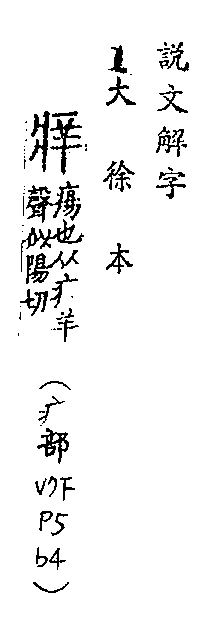 説文解字
1大徐本
痒 瘍也从疒羊
聲似陽切
(疒部
V7下
P5
b4)